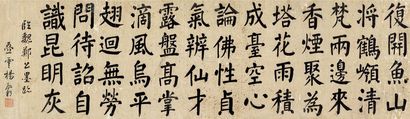 復開魚山
將鶴嶺清
梵兩邊來
香煙聚為
塔花雨積
成臺空心
論佛性貞
氣辨仙才
露盤高掌
滴風烏平
翅迴無勞
問待詔自
識昆明灰
臨魏鄭公墨跡